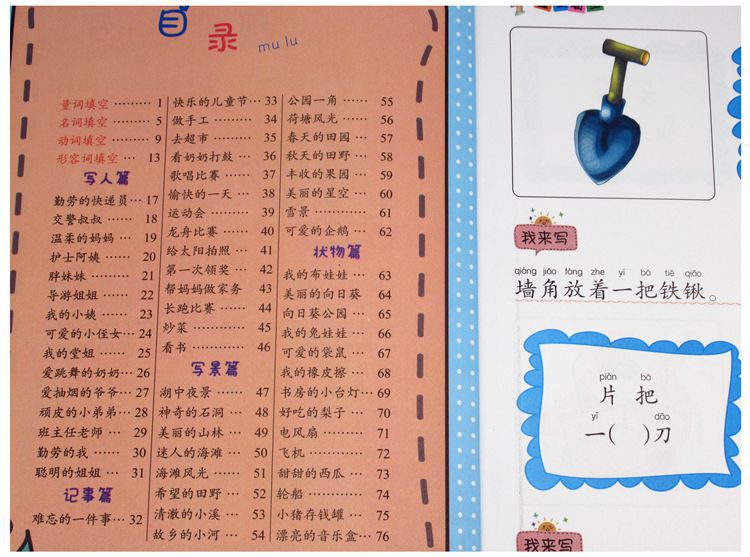 目录
mu lu
量词填空 ……… 1
名词填空 ……… 5
动词填空 ……… 9
形容词填空… 13
写人篇
勤劳的快递员…17
交警叔叔 …… 18
温柔的妈妈 … 19
护士阿姨 …… 20
胖妹妹 ……… 21
导游姐姐 …… 22
我的小姨 …… 23
可爱的小侄女…24
我的堂姐 …… 25
爱跳舞的奶奶…26
爱抽烟的爷爷…27
顽皮的小弟弟…28
班主任老师 … 29
勤劳的我 …… 30
聪明的姐姐 … 31
记事篇
难忘的一件事…32
快乐的儿童节…33
做手工 ……… 34
去超市 ……… 35
看奶奶打鼓 … 36
歌唱比赛 …… 37
愉快的一天 … 38
运动会 ……… 39
龙舟比赛 …… 40
给太阳拍照 … 41
第一次领奖 … 42
帮妈妈做家务 43
长跑比赛 …… 44
炒菜 ………… 45
看书 ………… 46
写景篇
湖中夜景 …… 47
神奇的石洞 … 48
美丽的山林 … 49
迷人的海滩 … 50
海滩风光 …… 51
希望的田野 … 52
清澈的小溪 … 53
故乡的小河 … 54
公园一角 …… 55
荷塘风光 …… 56
春天的田园 … 57
秋天的田野 … 58
丰收的果园 … 59
美丽的星空 … 60
雪景 ………… 61
可爱的企鹅 … 62
状物篇
我的布娃娃 … 63
美丽的向日葵 64
向日葵公园 … 65
我的兔娃娃 … 66
可爱的袋鼠 … 67
我的橡皮擦 … 68
书房的小台灯…69
好吃的梨子 … 70
电风扇 ……… 71
飞机 ………… 72
甜甜的西瓜 … 73
轮船 ………… 74
小猪存钱罐 … 75
漂亮的音乐盒…76
我来写
qiáng jiǎo fàng zhe yī bǎ tiě qiāo
墙角放着一把铁锹。
piàn bǎ
片 把
yī dāo
一( )刀
我来写